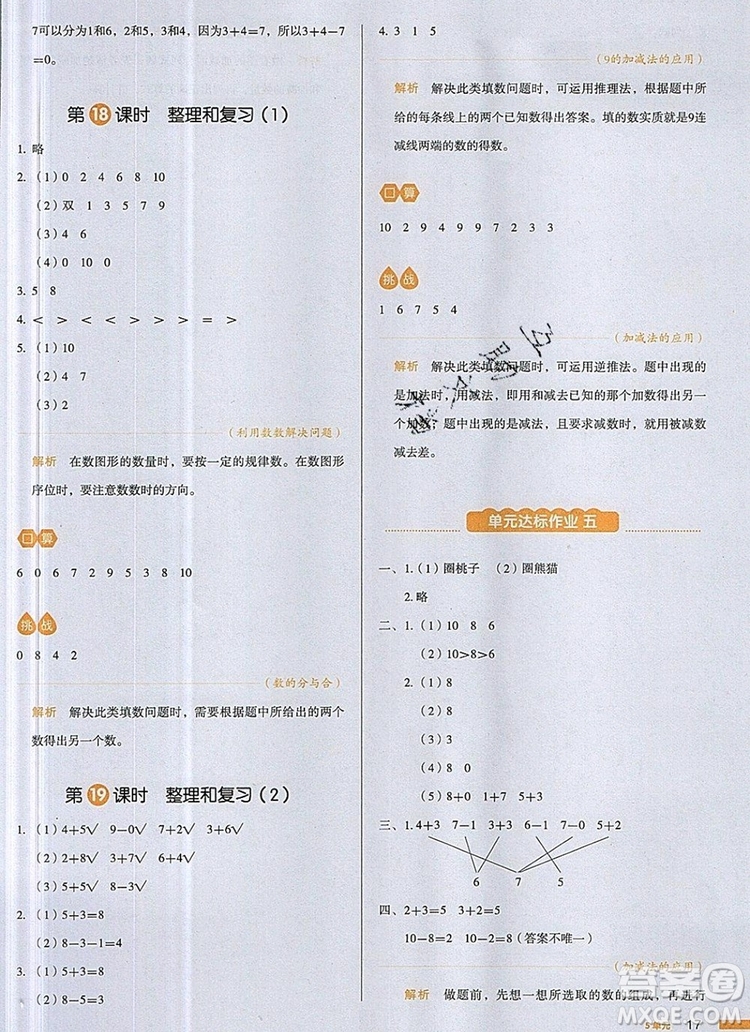 7可以分为1和6，2和5，3和4，因为3+4=7，所以3+4-7
=0。
第18课时 整理和复习（1）
1. 略
2.（1）0 2 4 6 8 10
（2）双 1 3 5 7 9
（3）4 6
（4）0 10 0
3. 5 8
4. < > < < > > > = >
5.（1）10
（2）4
（3）2
（利用数数解决问题）
解析 在数图形的数量时，要按一定的规律数。在数图形
序位时，要注意数数时的方向。
口算
6 0 6 7 2 9 0 2 7 10 9 10
挑战
0 8 4 2
（数的分与合）
解析 解决此类填数问题时，需要根据题中所给出的两个
数得出另一个数。
第19课时 整理和复习（2）
1.（1）4+5√ 9-0√ 7+2√ 3+6√
（2）2+8√ 3+7√ 6+4√
（3）5+3√ 8-3√
2.（1）5+3=8
（2）8-3-1=4
3.（1）5+3=8
（2）8-5=3
4. 3 1 5
（9的加减法的应用）
解析 解决此类填数问题时，可运用推理法，根据题中所
给的每条线上的两个已知数得出答案。填的数实质就是9连
减线两端的数的得数。
口算
10 2 9 4 9 9 7 2 3 3
挑战
1 6 7 5 4
（加减法的应用）
解析 解决此类填数问题时，可运用逆推法。题中出现的
是加法时，用减法，即用和减去已知的那个加数得出另一
个加数；题中出现的是减法，且要求减数时，就用被减数
减去差。
单元达标作业 五
一、1.（1）圈桃子 （2）圈熊猫
2. 略
二、1.（1）10 8 6
（2）10>8>6
2.（1）8
（2）8
（3）8
（4）8
（5）8+2=10 8-2=6
三、1. 4+3 7-1 3+3 6-1 7-0 5+2
6 7 5
四、2+3=5 3+2=5
10-8=2 10-2=8（答案不唯一）
（加减法的应用）
解析 做题前，先想一想所选取的数的组成，再进行
5单元 17
答案圈
MXQE.COM